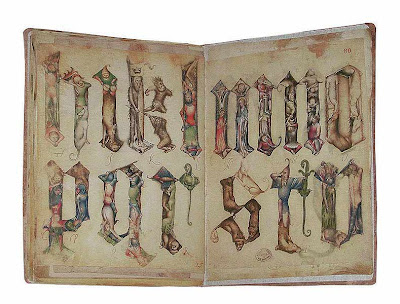 h i k l
m n o
p q r
s t